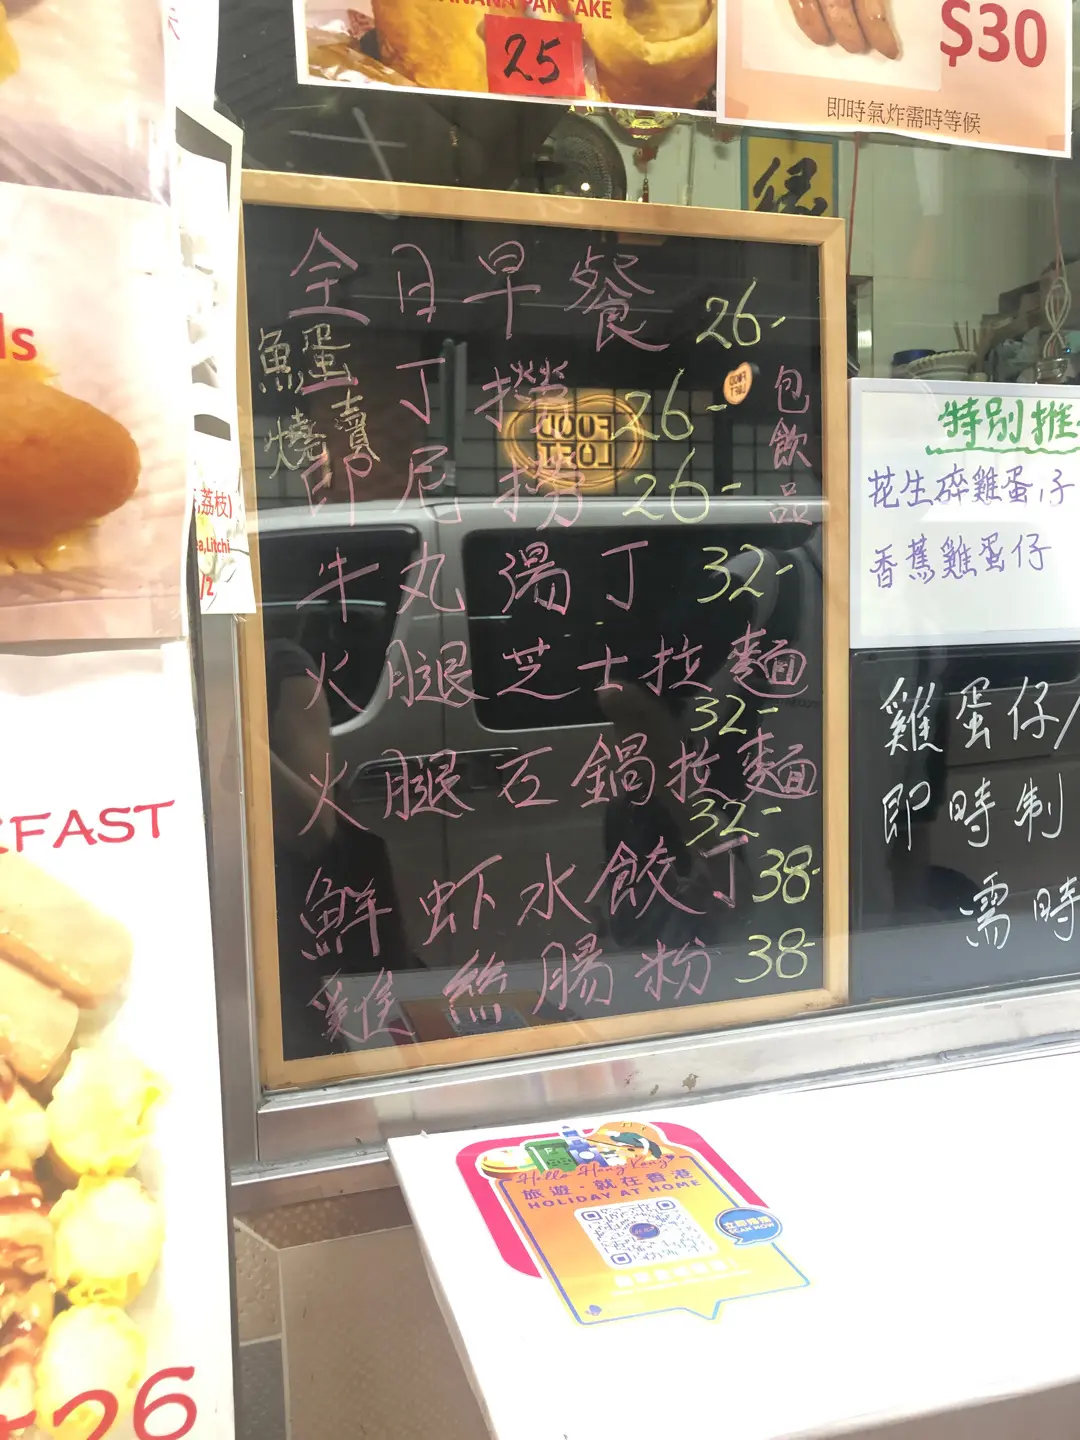 NANA PANCAKE
25
$30
即時氣炸需時等候
緣
全日早餐 26-
魚蛋
燒賣
丁撈 26-
即尼撈 26-
包飲品
牛丸湯丁 32-
火腿芝士拉麵
32-
火腿石鍋拉麵
32-
鮮虾水餃丁 38-
雞絲腸粉 38-
FOOD LOFT
特別推
花生碎雞蛋仔
香蕉雞蛋仔
雞蛋仔/
即時制
需時
ls
,荔枝)
a,Litchi
/2
KFAST
26
Hello Hong Kong
旅遊·就在香港
HOLIDAY AT HOME
立即掃描
SCAN NOW